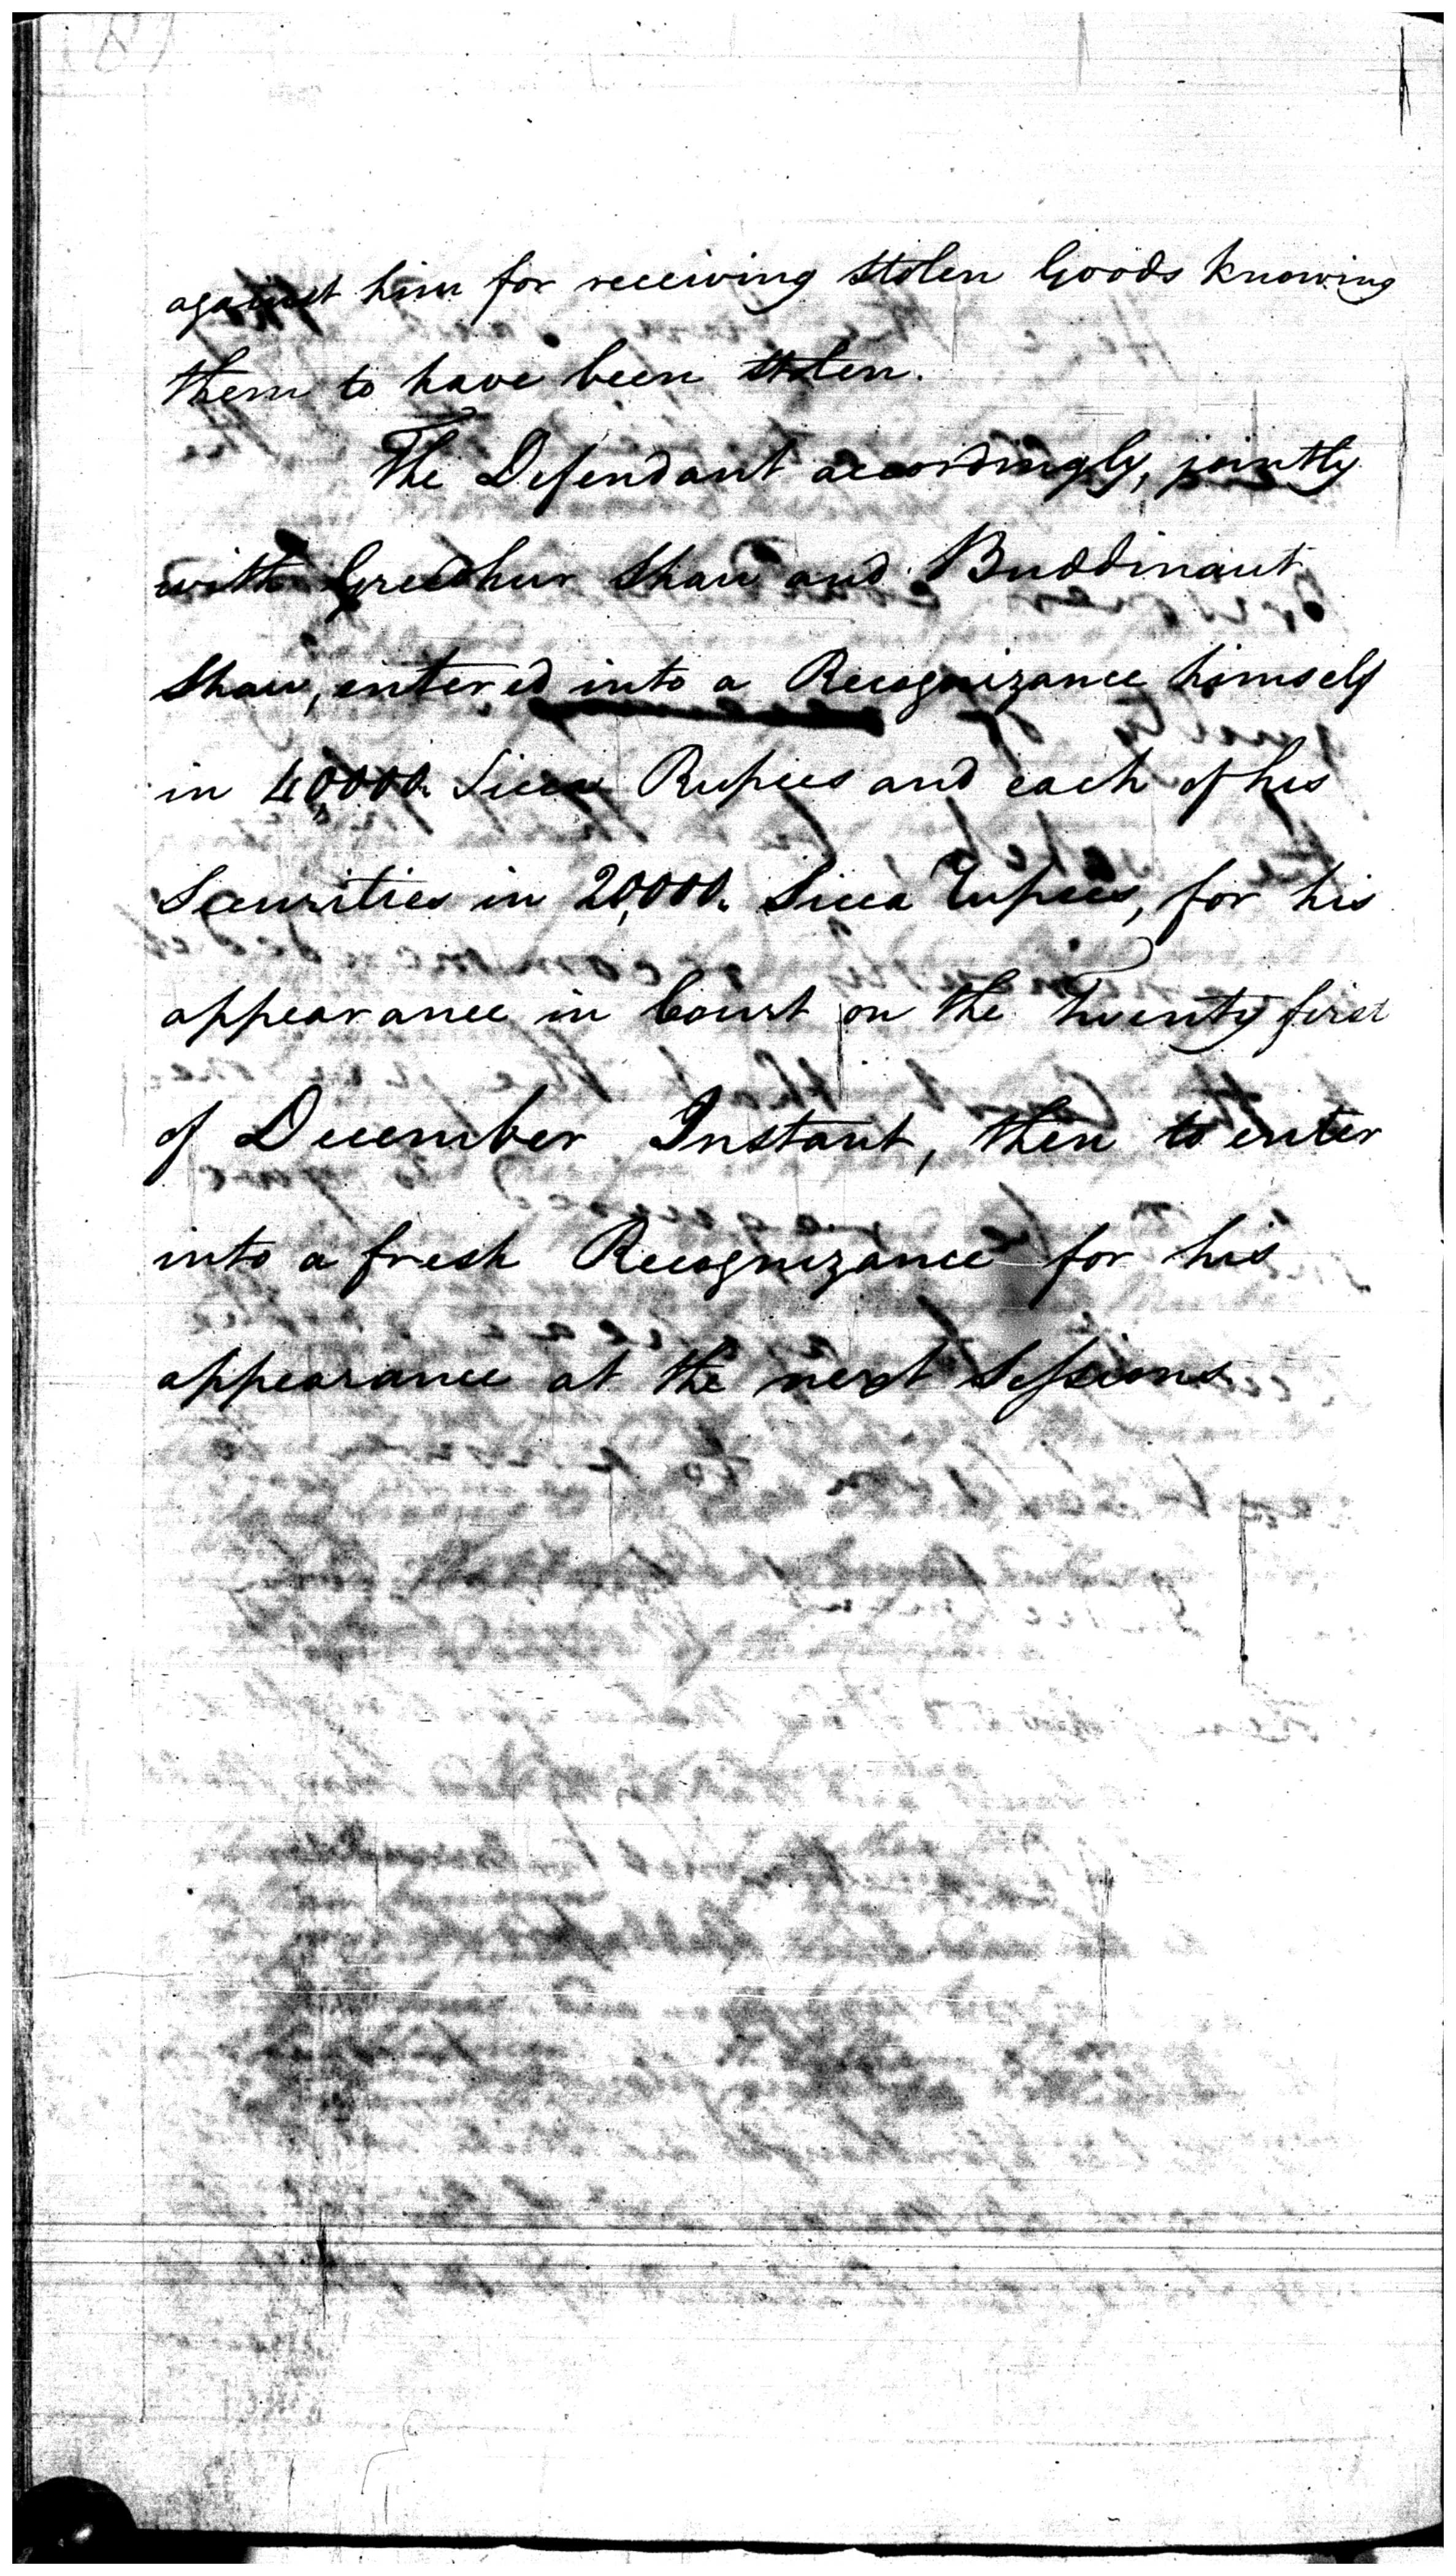 against him for receiving stolen Goods knowing
them to have been stolen.
The Defendant accordingly, jointly
with Greedhur Shaw and Buddinaut
Shaw, entered into a Recognizance himself
in 40,000. Sicca Rupees and each of his
Securities in 20,000. Sicca Rupees, for his
appearance in Court on the Twenty first
of December Instant, then to enter
into a fresh Recognizance for his
appearance at the next Sessions